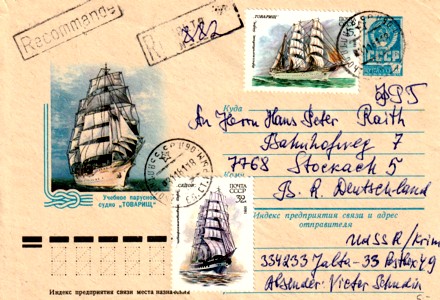 Recommandé
882
"ТОВАРИЩ"
ПОЧТА СССР
СССР
Куда
ФРГ
An Herrn Hans Peter Raith
Bahnhofweg 7
Кому
7768 Stockach 5
B. R. Deutschland
Учебное парусное
судно „ТОВАРИЩ"
"СЕДОВ"
ПОЧТА
СССР
32
Индекс предприятия связи и адрес
отправителя
UdSSR/Krim
334233 Jalta-33 Postlox 49
Absender: Victor
Индекс предприятия связи места назначения